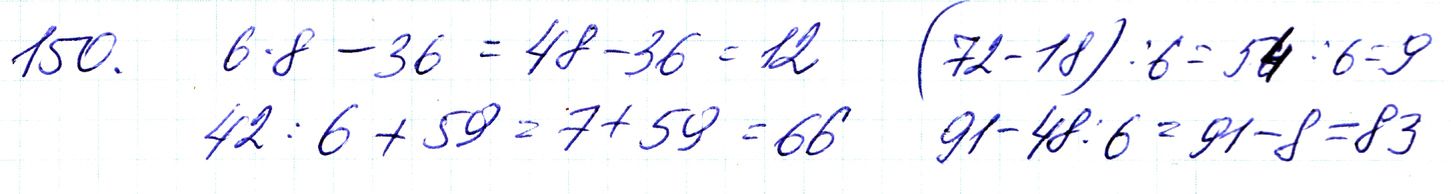 150. 6·8 - 36 = 48 - 36 = 12 (72 - 18) : 6 = 54 : 6 = 9
42 : 6 + 59 = 7 + 59 = 66 91 - 48 : 6 = 91 - 8 = 83